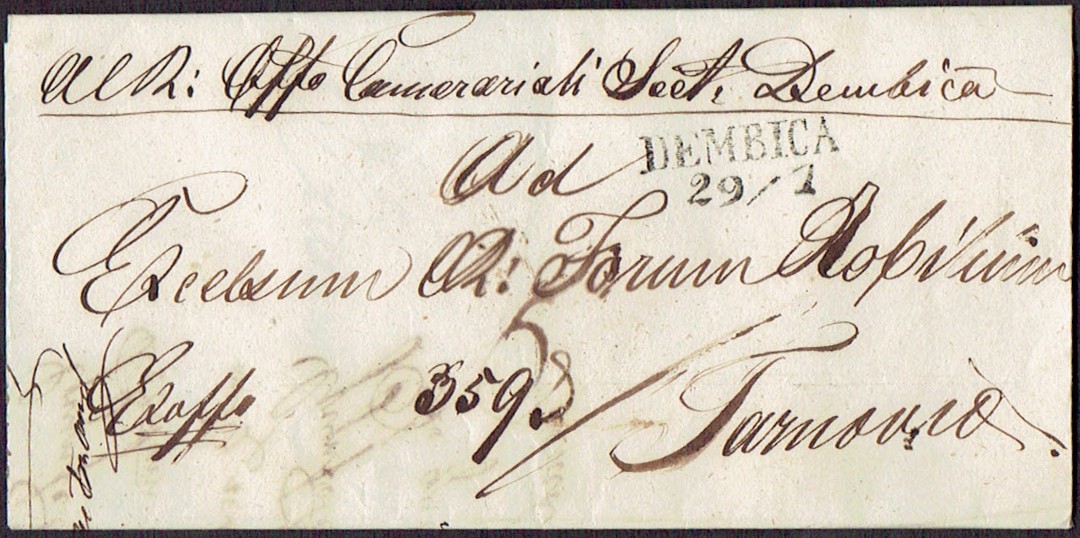 Al R: Offo Camerariali Sect. Dembica
DEMBICA
29/7
Ad
Excelsum R: Forum Nobilium
Exoffo 359. Tarnoviæ.